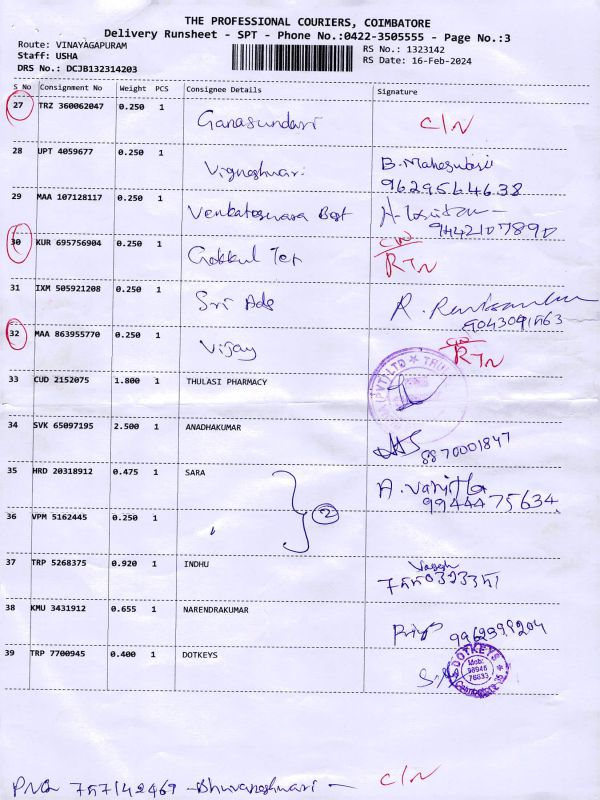 THE PROFESSIONAL COURIERS, COIMBATORE
Delivery Runsheet - SPT - Phone No.:0422-3505555 - Page No.:3
Route: VINAYAGAPURAM RS No.: 1323142
Staff: USHA RS Date: 16-Feb-2024
DRS No.: DCJB132314203
S No Consignment No Weight PCS Consignee Details Signature
27 TRZ 360062047 0.250 1 Ganasundari C/N
28 UPT 4059677 0.250 1 Vigneshwari B. Maheswari
9629564638
29 MAA 107128117 0.250 1 Venkateswara Best
9442107890
30 KUR 695756904 0.250 1 Gokkul Tex RTN
31 IXM 505921208 0.250 1 Sri Ads R.
32 MAA 863955770 0.250 1 Vijay RTN
33 CUD 2152075 1.800 1 THULASI PHARMACY
PVT LTD
34 SVK 65097195 2.500 1 ANADHAKUMAR
8870001847
35 HRD 20318912 0.475 1 SARA A. Vanitha
9944475634
36 VPM 5162445 0.250 1 2
37 TRP 5268375 0.920 1 INDHU
38 KMU 3431912 0.655 1 NARENDRAKUMAR Priya
39 TRP 7700945 0.400 1 DOTKEYS
DOTKEYS
Mob:
98945
76833
Coimbatore
Bhuvaneshwari C/N